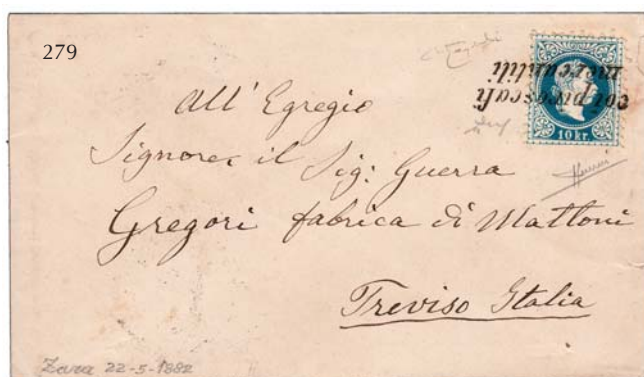 279
coi piroscafi
mercantili
10 kr.
All'Egregio
Signore il Sig: Guerra
Gregori fabrica di Mattoni
Treviso Italia
Zara 22-5-1882